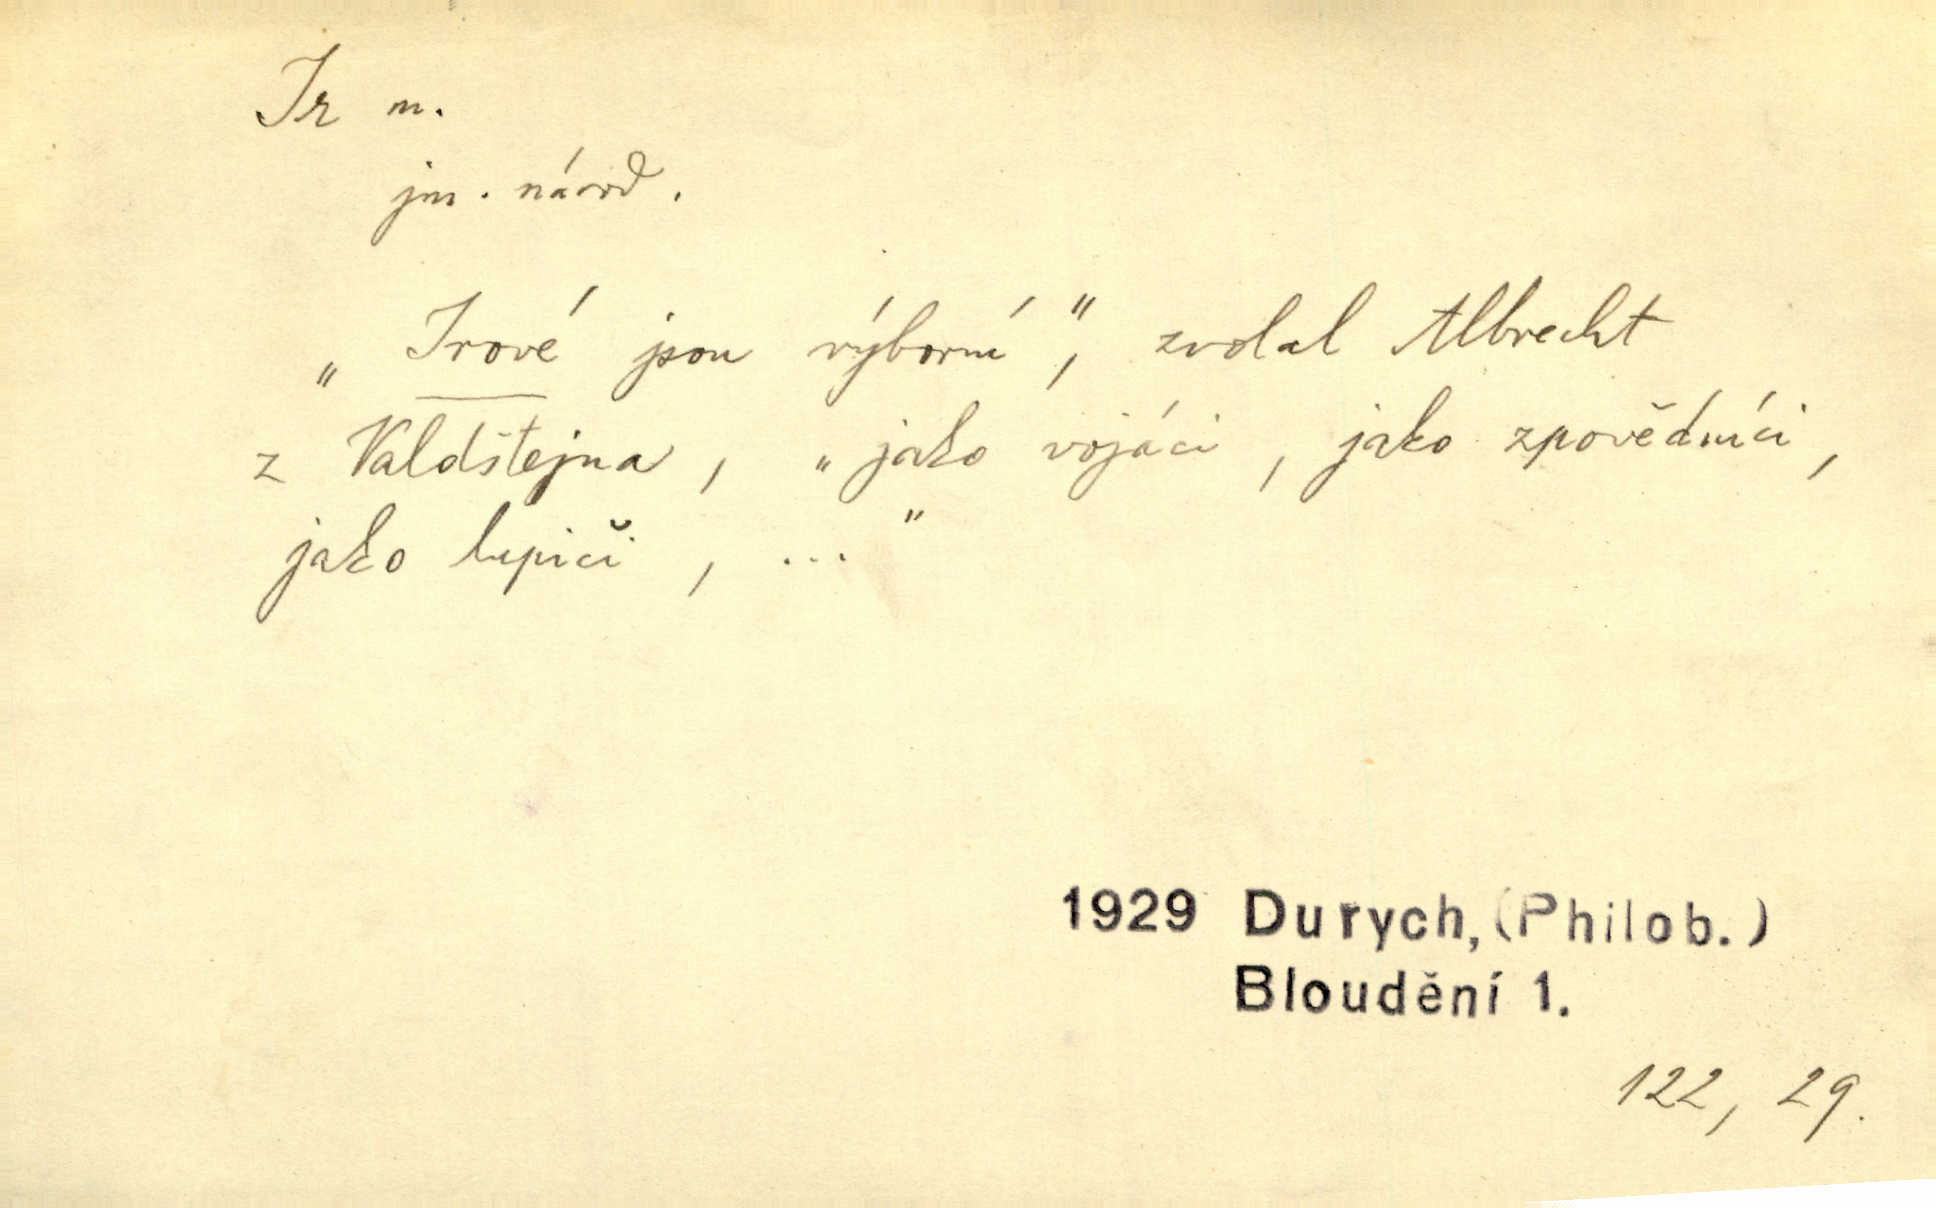 Ir m.
jm. národ.
„Irové jsou výborní", zvolal Albrecht
z Valdštejna, „jako vojáci, jako zpovědníci,
jako lupiči, ..."
1929 Durych, (Philob.)
Bloudění 1.
122, 29.